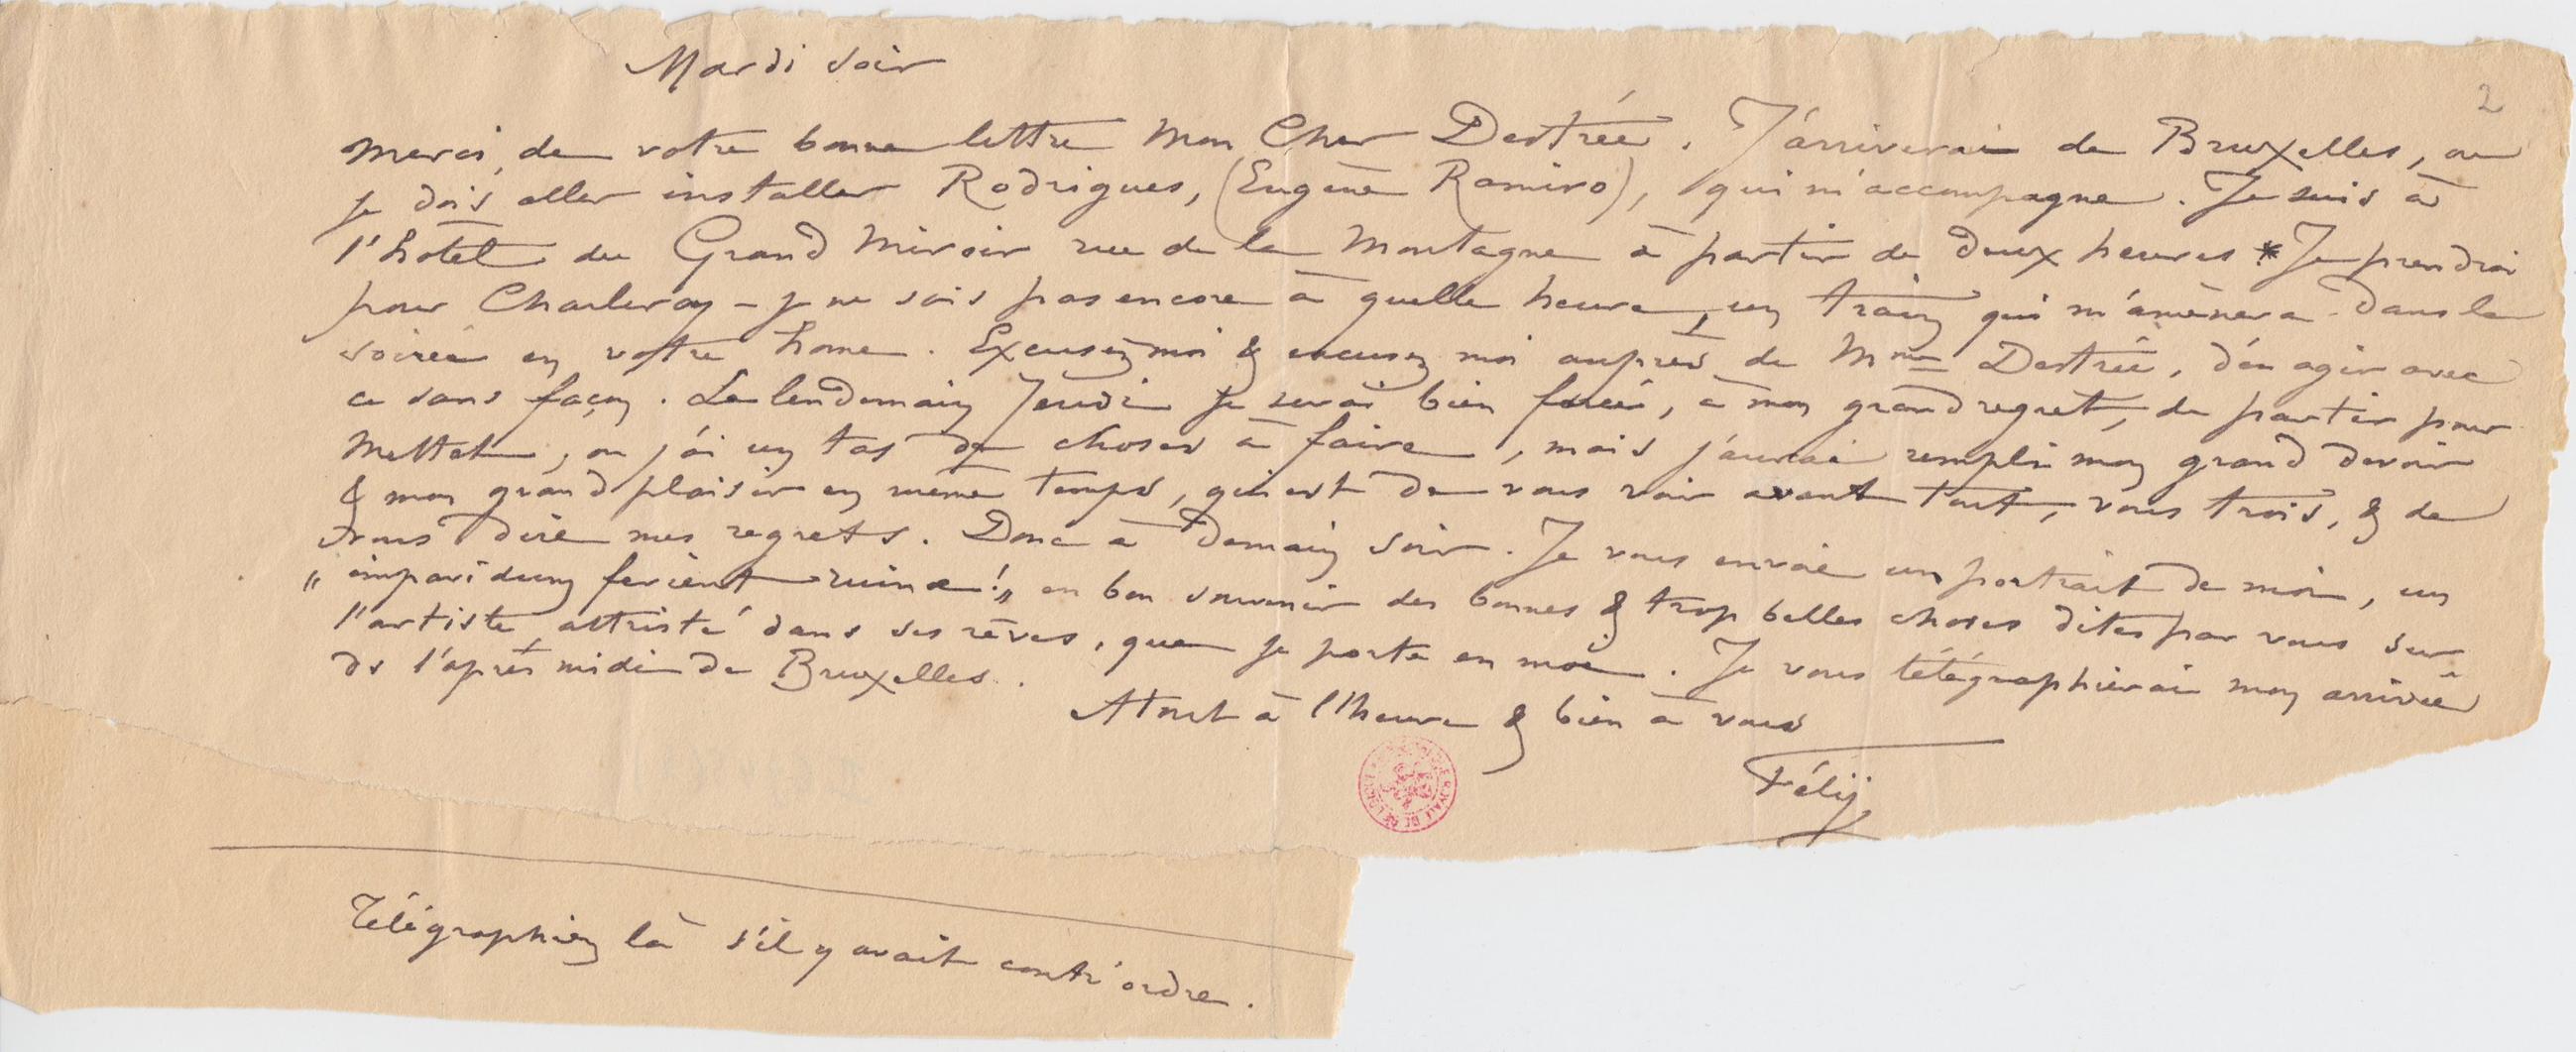 Mardi soir
2
Merci, de votre bonne lettre Mon Cher Destrée. J'arriverai de Bruxelles, où
je dois aller installer Rodrigues, (Eugène Ramiro), qui m'accompagne. Je suis à
l'hôtel du Grand Miroir rue de la Montagne à partir de deux heures * Je prendrai
pour Charleroy – je ne sais pas encore à quelle heure, un train qui m'amènera dans la
soirée en votre home. Excusez moi & excusez moi auprès de Mme Destrée, d'en agir avec
ce sans façon. Le lendemain Jeudi je serai bien forcé, à mon grand regret, de partir pour
Mettet, ou j'ai un tas de choses à faire, mais j'aurai rempli mon grand devoir
& mon grand plaisir en même temps, qui est de vous voir avant tout, vous trois, & de
vous dire mes regrets. Donc à Demain soir. Je vous envoie un portrait de moi, un
„ impavidum ferient ruinæ! „ en bon souvenir des bonnes & trop belles choses dites par vous sur
l'artiste, attristé dans ses rêves, que je porte en moi. Je vous télégraphierai mon arrivée
ds l'après midi de Bruxelles.
A tout à l'heure & bien à vous
Féliy
Télégraphiez là s'il y avait contr'ordre.